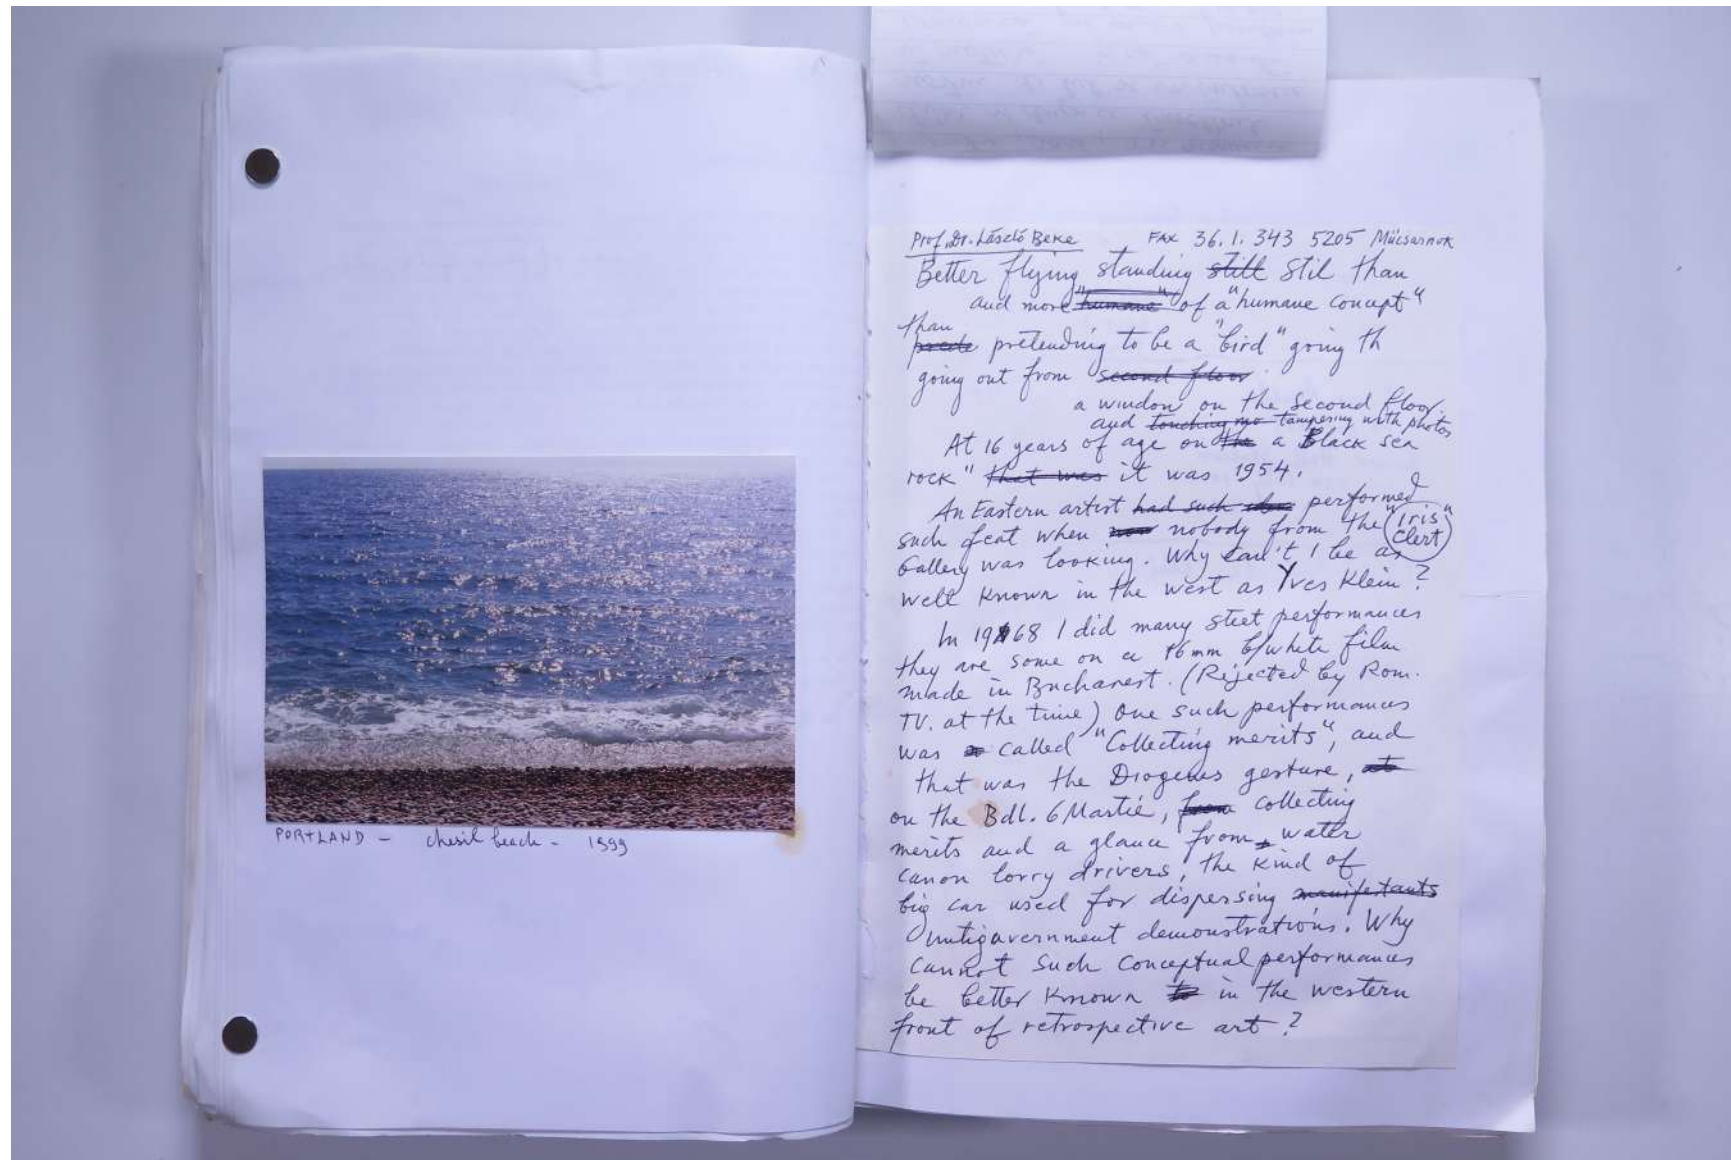 PORTLAND - chesil beach - 1999
Prof. Dr. László Beke FAX 36. 1. 343 5205 Mücsarnok
Better flying standing still stil than
and more "humane" of a "humane concept"
than
pretending to be a "bird" going th
going out from second floor.
a window on the second floor.
and touching tampering with photos
At 16 years of age on the a Black sea
rock" that was it was 1954.
An Eastern artist had such performed
such feat when nobody from the "Iris"
Clert
Gallery was looking. Why can't I be as
well known in the west as Yves Klein?
In 1968 I did many steet performances
they are some on a 16mm b/white film
made in Bucharest. (Rejected by Rom.
TV. at the time) One such performances
was a called "Collecting merits", and
that was the Diogenes gesture, at
on the Bdl. 6 Martie, from collecting
merits and a glance from water
canon lorry drivers, the kind of
big car used for dispersing manifestants
antigavernment demonstrations. Why
cannot such conceptual performances
be better known to in the western
front of retrospective art?